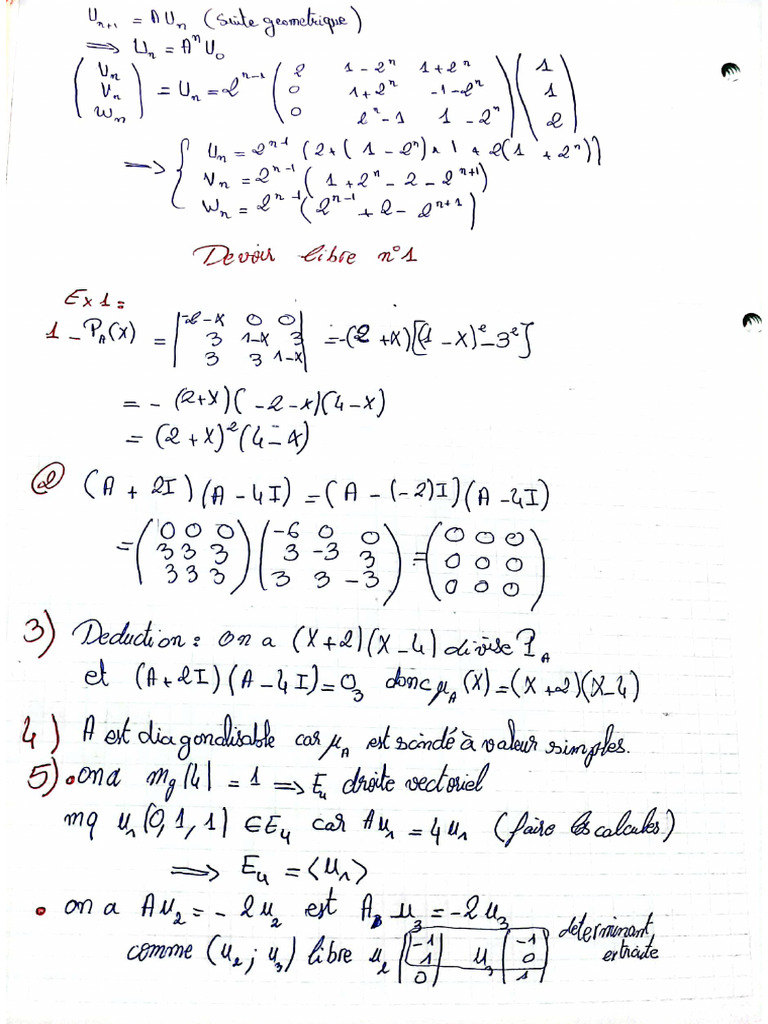 U_{n+1} = AU_n (suite geometrique)
⟹ U_n = A^n U_0
(U_n ; V_n ; W_n) = U_n = 2^{n-1} (2 1-2^n 1+2^n ; 0 1+2^n -1-2^n ; 0 2^n-1 1-2^n) (1 ; 1 ; 2)
⟹ { U_n = 2^{n-1} (2+(1-2^n)×1+2(1+2^n))
V_n = 2^{n-1} (1+2^n-2-2^{n+1})
W_n = 2^{n-1} (2^{n-1}+2-2^{n+1})
Devoir libre n°1
Ex1:
1- P_A(X) = |-2-X 0 0 ; 3 1-X 3 ; 3 3 1-X| = -(2+X)[(1-X)^2-3^2]
= -(2+X)(-2-X)(4-X)
= (2+X)^2(4-X)
② (A+2I)(A-4I) = (A-(-2)I)(A-4I)
= (0 0 0 ; 3 3 3 ; 3 3 3) (-6 0 0 ; 3 -3 3 ; 3 3 -3) = (0 0 0 ; 0 0 0 ; 0 0 0)
3) Deduction: on a (X+2)(X-4) divise P_A
et (A+2I)(A-4I)=O_3 donc μ_A(X)=(X+2)(X-4)
4) A est diagonalisable car μ_A est scindé à valeur simples.
5) • on a mg(4) = 1 ⟹ E_4 droite vectoriel
mq u_1(0,1,1) ∈ E_4 car Au_1 = 4u_1 (faire les calcules)
⟹ E_4 = <u_1>
• on a Au_2 = -2u_2 est A u_3 = -2u_3
comme (u_2; u_3) libre u_2 (-1 ; 1 ; 0) u_3 (-1 ; 0 ; 1) determinant extraite